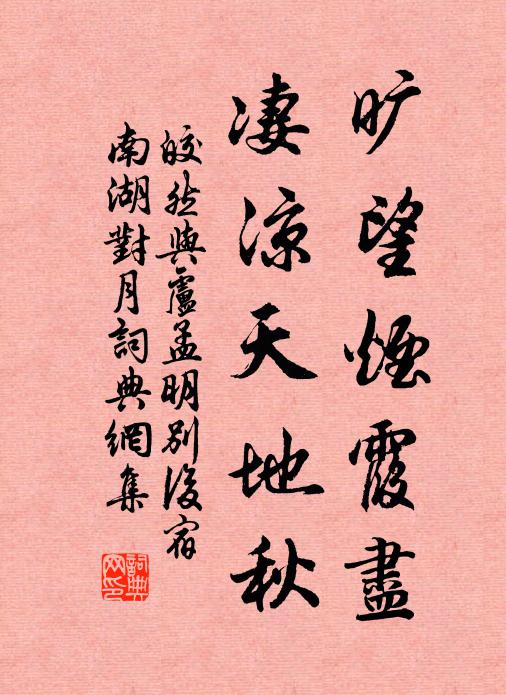 旷望煙霞盡
凄凉天地秋
皎然與盧孟明别後宿
南湖對月詞典網集
詞典
网印